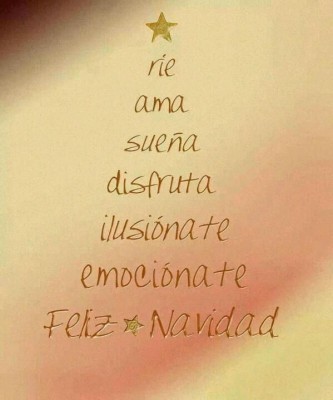 rie
ama
sueña
disfruta
ilusiónate
emociónate
Feliz Navidad